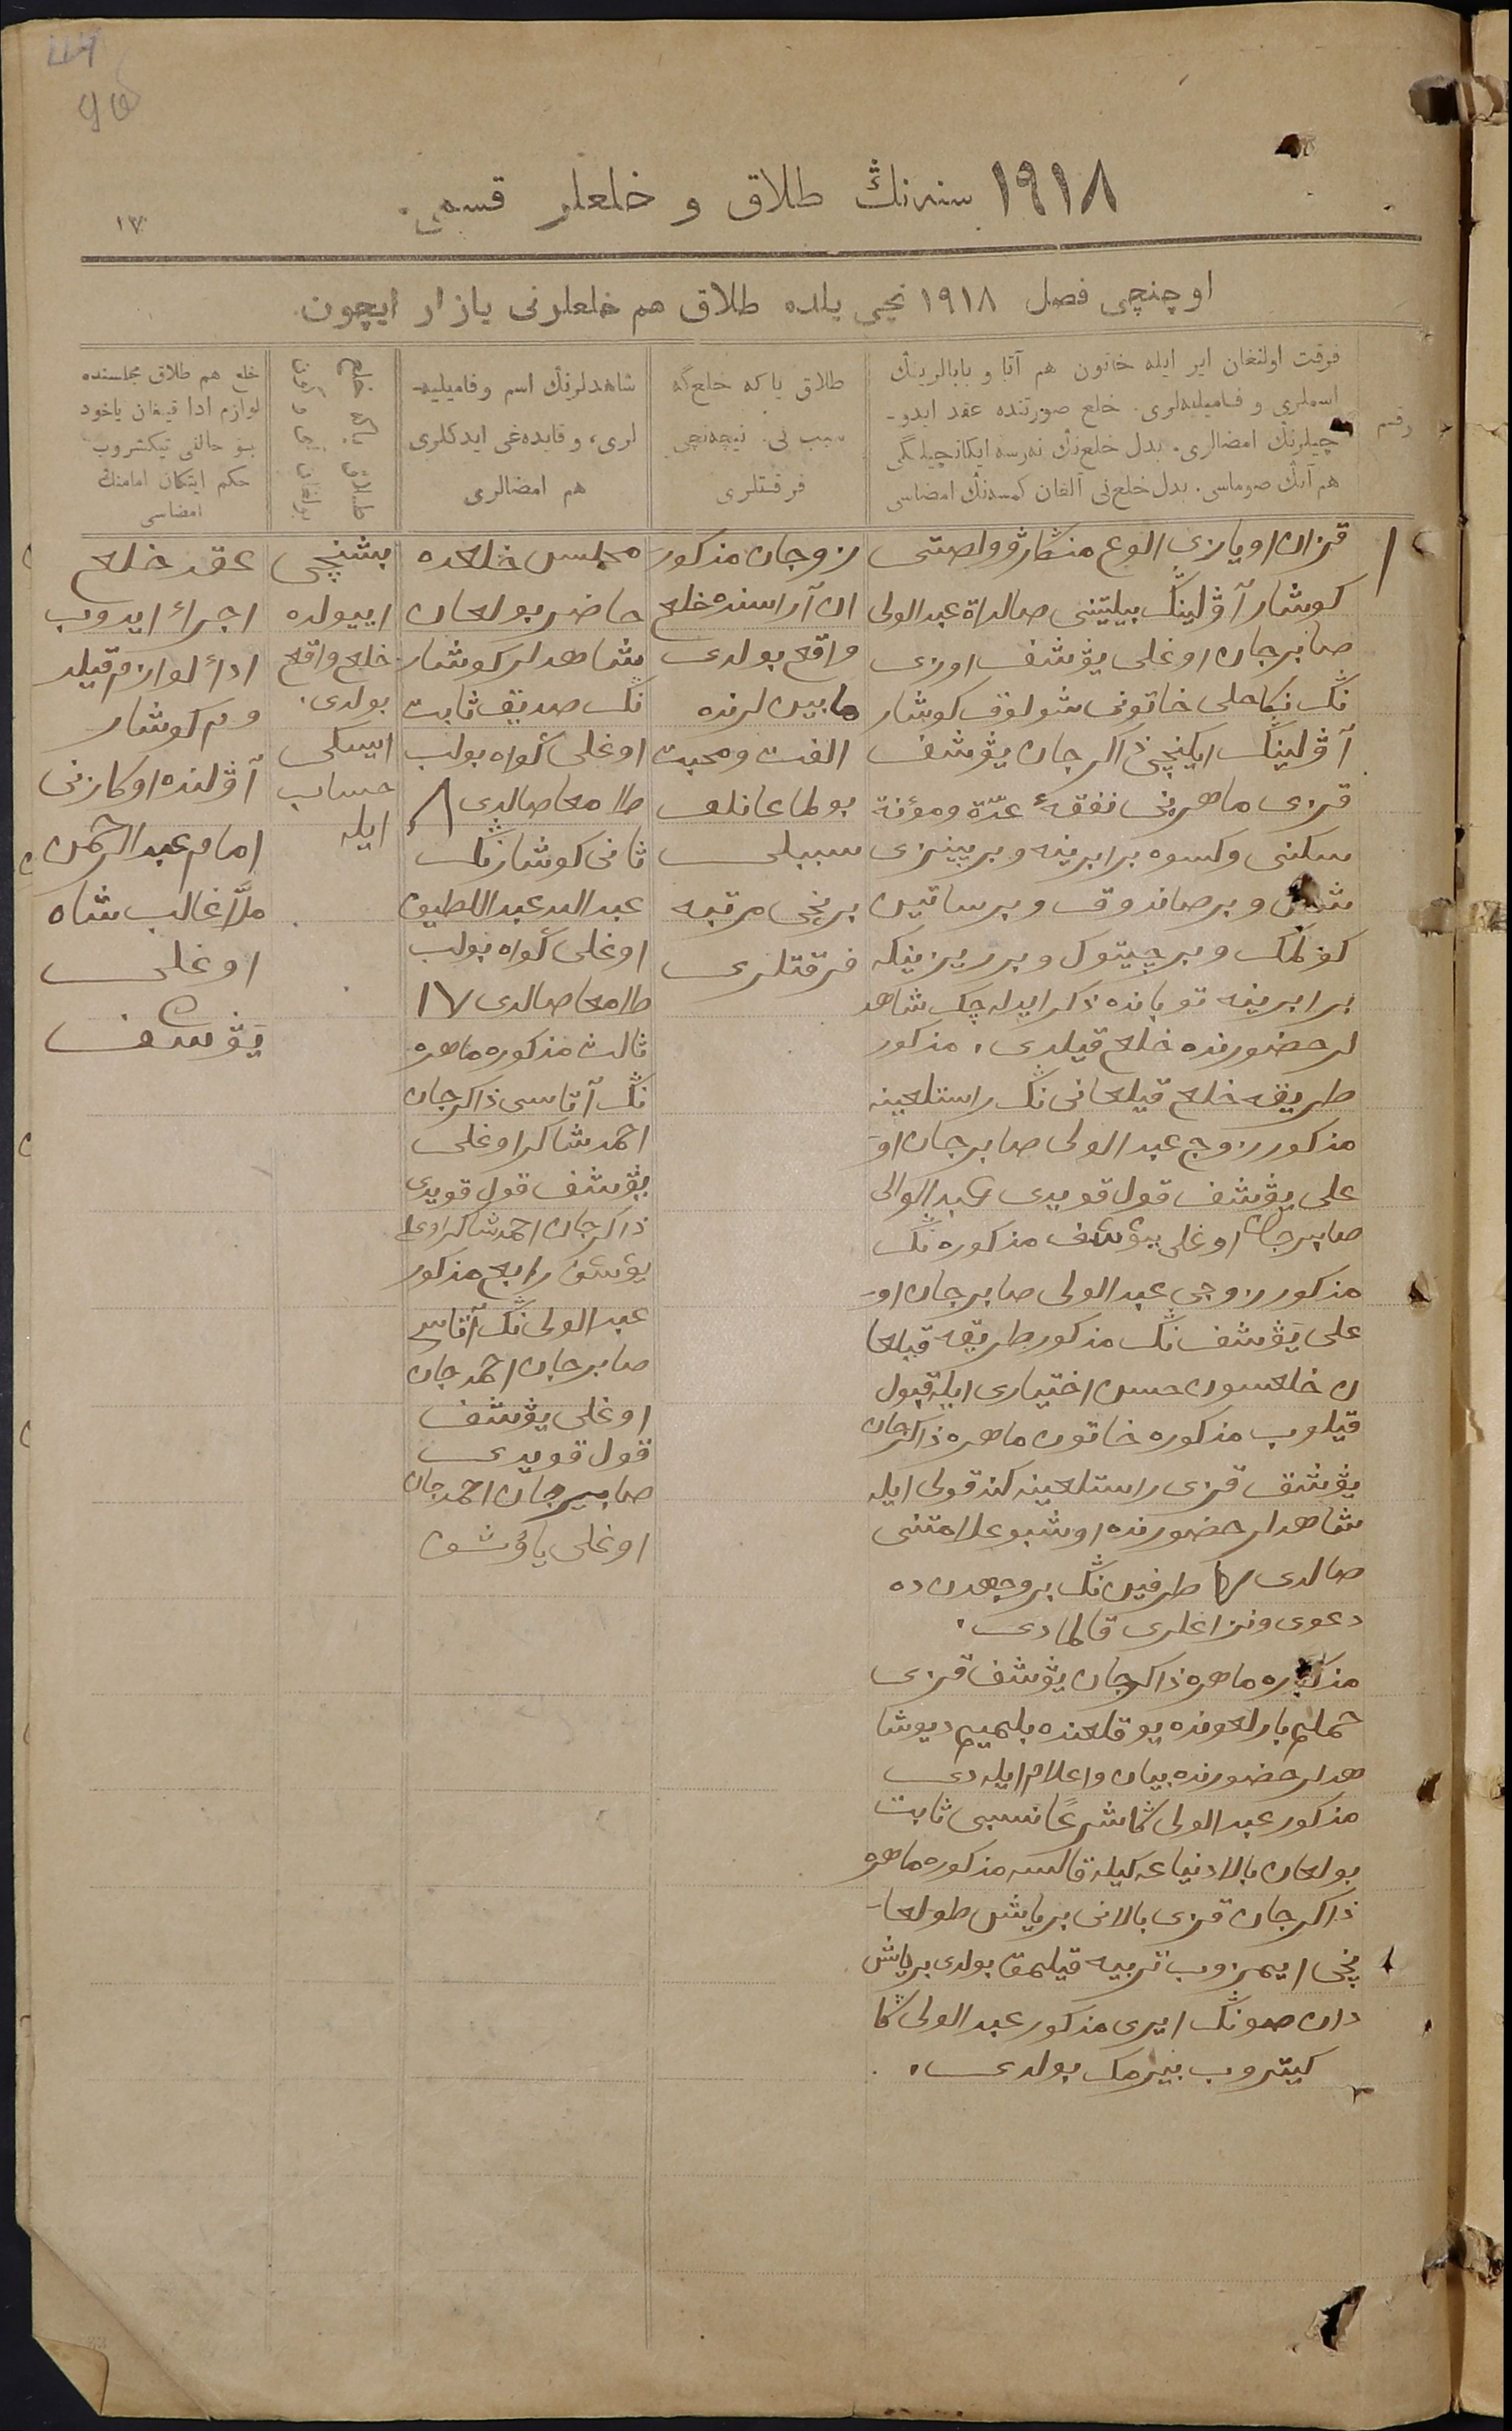 ١٩١٨ سنه‌نڭ طلاق و خلعلر قسمی.
١٧
اوچنچی فصل ١٩١٨ نچی یلده طلاق هم خلعلرنی یازار ایچون.
رقم
فرقت اولنغان ایر ایله خاتون هم آتا و بابالرینڭ
اسملری و فامیلیه‌لری. خلع صورتنده عقد ایدو-
چیلرنڭ امضالری. بدل خلع‌نڭ نه‌رسه ایکانچیلگی
هم آنڭ صوماسی. بدل خلع‌نی آلغان کمسه‌نڭ امضاسی
طلاق یا که خلع‌گه
سبب نی. نیچه‌نچی
فرقتلری
شاهدلرنڭ اسم وفامیلیه-
لری، و قایده‌غی ایدکلری
هم امضالری
خلع یاکه طلاق
نچی آی و کون
بولغان
خلع هم طلاق مجلسنده
لوازم ادا قیغان یاخود
بو حالنی تیکشروب
حکم ایتکان امامنڭ
امضاسی
١
قزان اویازی الوع منگار وولصتی
کوشار آولینڭ بیلیتنی صالداة عبد الولی
صابرجان اوغلی یوشف اوزی
نڭ نکاحلی خاتونی شولوق کوشار
آولینڭ ایکنچی ذاکرجان یوشف
قزی ماهره‌نی نفقهٔ عدّة ومؤنة
سکنی وکسوه برابرینه وبر بیزی
شال وبرصاندوق وبرساتین
کولمک وبرچیتوک وبر ریزینکه
برابرینه توبانده ذکر ایدله‌چک شاهد
لر حضورنده خلع قیلدی. مذکور
طریقه خلع قیلعانی نڭ راستلعینه
مذکور زوج عبد الولی صابرجان او-
علی یوشف قول قویدی عبد الوالی
صابیرجان اوغلی یوشف مذکوره نڭ
مذکور زوجی عبد الولی صابرجان او-
علی یوشف نڭ مذکور طریقه قیلعا
ن خلعسون حسن اختیاری ایله قبول
قیلوب مذکوره خاتون ماهره ذاکرجان
یوشف قزی راستلعینه کند قولی ایله
شاهدلر حضورنده اوشبو علامتنی
صالدی طرفین نڭ بروجهدن ده
دعوی ونزاعلری قالمادی.
مذکوره ماهره ذاکرجان یوشف قزی
حملم بارلعونده یوقلعنده بلمییم دیو شا
هدلر حضورنده بیان واعلام ایله‌دی
مذکور عبد الولی گا شرعًا نسبی ثابت
بولعان بالا دنیاعه کیله قالسه مذکوره ماهره
ذاکرجان قزی بالانی بریاش طولعا-
نچی ایمزوب تربیه قیلمق بولدی بریاش
دان صونڭ ایری مذکور عبد الولی گا
کیتروب بیرمک بولدی.
زوجان مذکور-
ان آراسنده خلع
واقع بولدی
مابین لرنده
الفت ومحبت
بولماعانلق
سببلی
برنچی مرتبه
فرقتلری
مجلس خلعده
حاضر بولعان
شاهدلر کوشار
نڭ صدیق ثابت
اوغلی گواه بولب
طامعا صالدی ٨
ثانی کوشار نڭ
عبد الله عبد اللطیف
اوغلی گواه بولب
طامعا صالدی ١٧
ثالث مذکوره ماهره
نڭ آتاسی ذاکرجان
احمدشاکر اوغلی
یوشف قول قویدی
ذاکرجان احمدشاکر اوغلی
یوشف رابع مذکور
عبد الولی نڭ آتاسی
صابرجان احمدجان
اوغلی یوشف
قول قویدی
صابیرجان احمدجان
اوغلی یاؤشف
بشنچی
اییولده
خلع واقع
بولدی.
ایسکی
حساب
ایله
عقد خلع
اجراءٔ ایدوب
اداءٔ لوازم قیلد
وم کوشار
آولنده اوکازنی
امام عبد الرحمن
ملّا غالب شاه
اوغلی
یوشف